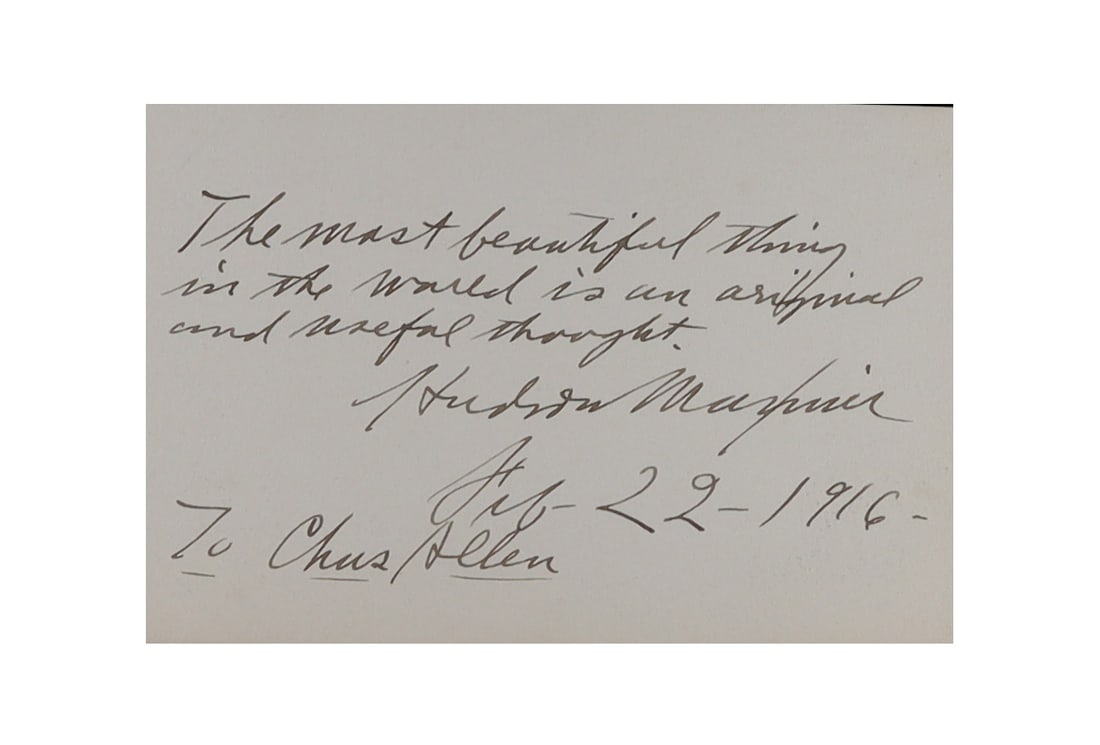 The most beautiful thing
in the world is an original
and useful thought.
Hudson Maxim
Feb- 22-1916-
To Chas Allen